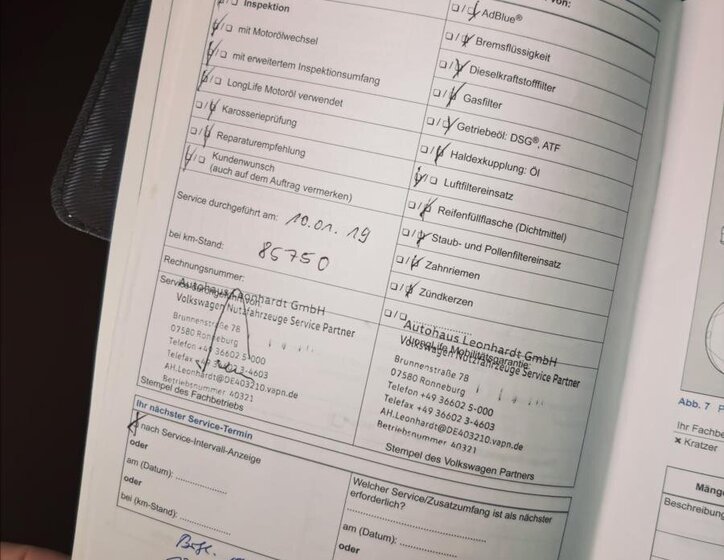 von:
Inspektion
mit Motorölwechsel
mit erweitertem Inspektionsumfang
LongLife Motoröl verwendet
Karosserieprüfung
Reparaturempfehlung
Kundenwunsch
(auch auf dem Auftrag vermerken)
Service durchgeführt am: 10.01.19
bei km-Stand: 85750
Rechnungsnummer:
Service durchgeführt von:
Autohaus Leonhardt GmbH
Volkswagen Nutzfahrzeuge Service Partner
Brunnenstraße 78
07580 Ronneburg
Telefon +49 36602 5-000
Telefax +49 36602 3-4603
AH.Leonhardt@DE403210.vapn.de
Betriebsnummer 40321
Stempel des Fachbetriebs
AdBlue®
Bremsflüssigkeit
Dieselkraftstofffilter
Gasfilter
Getriebeöl: DSG®, ATF
Haldexkupplung: Öl
Luftfiltereinsatz
Reifenfüllflasche (Dichtmittel)
Staub- und Pollenfiltereinsatz
Zahnriemen
Zündkerzen
LongLife Mobilitätsgarantie:
Autohaus Leonhardt GmbH
Volkswagen Nutzfahrzeuge Service Partner
Brunnenstraße 78
07580 Ronneburg
Telefon +49 36602 5-000
Telefax +49 36602 3-4603
AH.Leonhardt@DE403210.vapn.de
Betriebsnummer 40321
Stempel des Volkswagen Partners
Ihr nächster Service-Termin
nach Service-Intervall-Anzeige
oder
am (Datum):
oder
bei (km-Stand):
Welcher Service/Zusatzumfang ist als nächster
erforderlich?
am (Datum):
oder
Abb. 7
Ihr Fachbe
× Kratzer
Mänge
Beschreibung